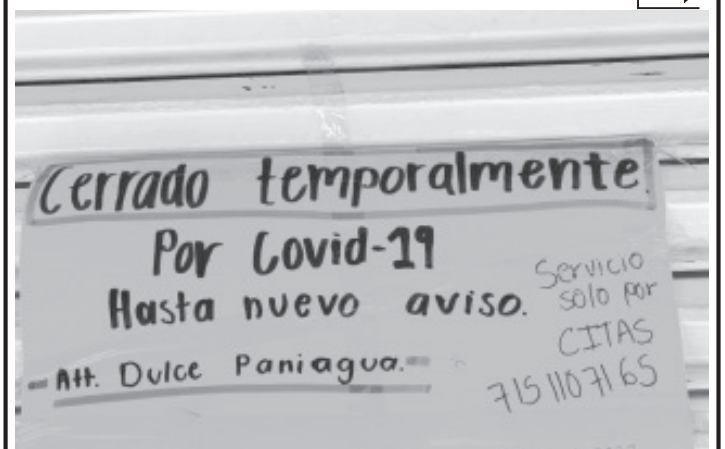 Cerrado temporalmente.
Por Covid-19
Hasta nuevo aviso.
Att. Dulce Paniagua.
Servicio
solo por
CITAS
7151107165